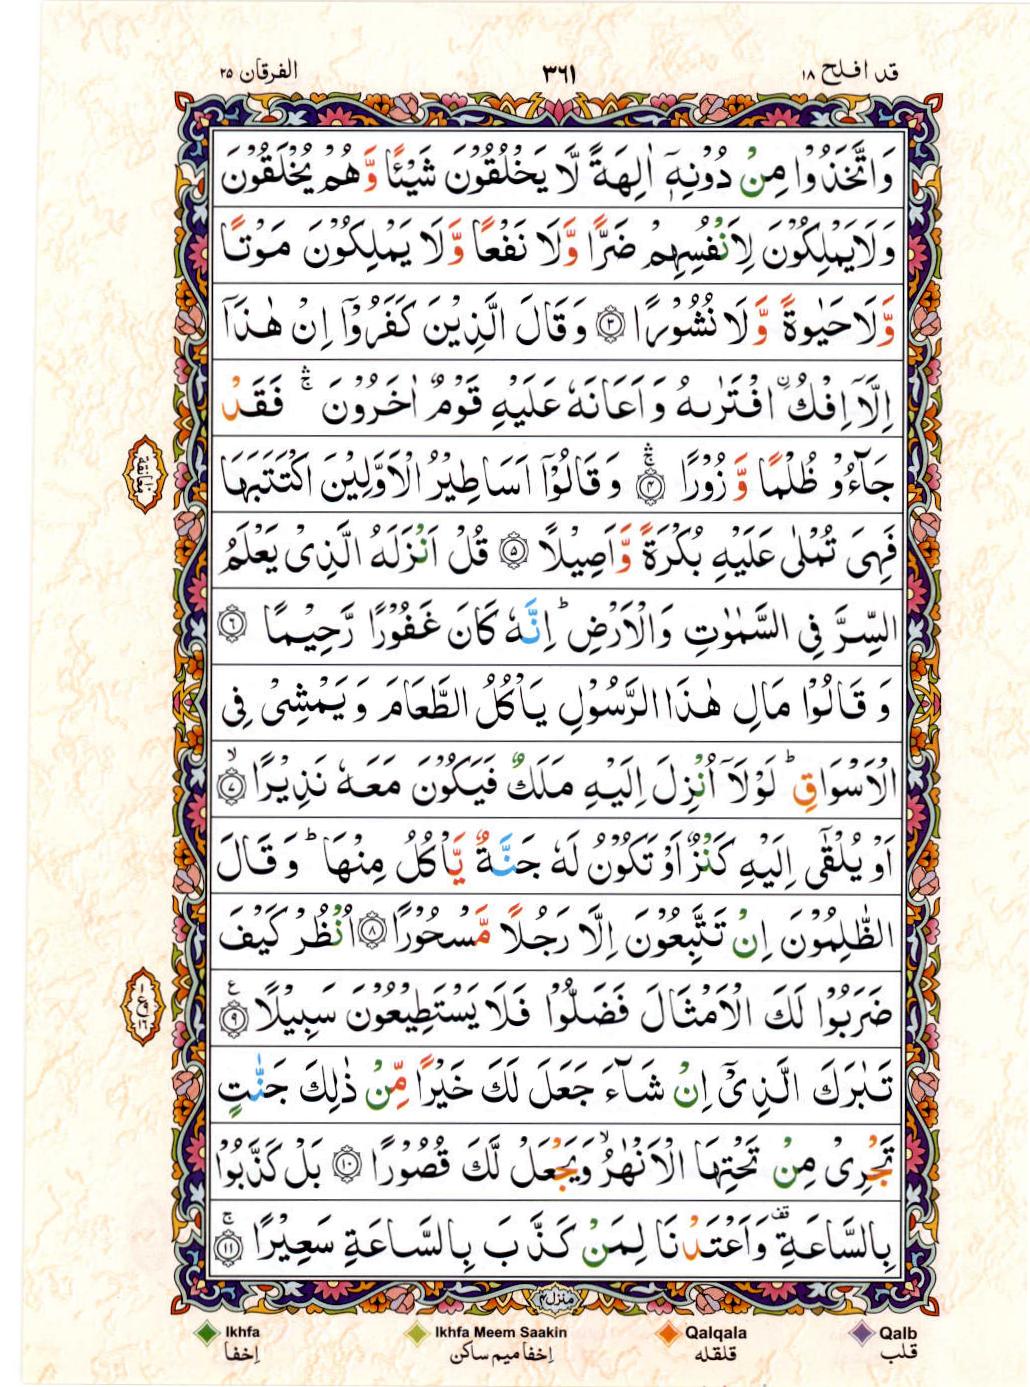 الفرقان ٢٥
٣٦١
قد افلح ١٨
وَاتَّخَذُوْا مِنْ دُوْنِهٖۤ اٰلِهَةً لَّا يَخْلُقُوْنَ شَيْـًٔا وَّهُمْ يُخْلَقُوْنَ
وَلَا يَمْلِكُوْنَ لِاَنْفُسِهِمْ ضَرًّا وَّلَا نَفْعًا وَّلَا يَمْلِكُوْنَ مَوْتًا
وَّلَا حَيٰوةً وَّلَا نُشُوْرًا ۝٣ وَقَالَ الَّذِيْنَ كَفَرُوْۤا اِنْ هٰذَاۤ
اِلَّاۤ اِفْكُ اۨفْتَرٰىهُ وَاَعَانَهٗ عَلَيْهِ قَوْمٌ اٰخَرُوْنَ ۛۚ فَقَدْ
جَآءُوْ ظُلْمًا وَّزُوْرًا ۝٤ۛۚ وَقَالُوْۤا اَسَاطِيْرُ الْاَوَّلِيْنَ اكْتَتَبَهَا
معانقة
فَهِىَ تُمْلٰى عَلَيْهِ بُكْرَةً وَّاَصِيْلًا ۝٥ قُلْ اَنْزَلَهُ الَّذِىْ يَعْلَمُ
السِّرَّ فِى السَّمٰوٰتِ وَالْاَرْضِ ؕ اِنَّهٗ كَانَ غَفُوْرًا رَّحِيْمًا ۝٦
وَقَالُوْا مَالِ هٰذَا الرَّسُوْلِ يَاْكُلُ الطَّعَامَ وَيَمْشِىْ فِى
الْاَسْوَاقِ ؕ لَوْلَاۤ اُنْزِلَ اِلَيْهِ مَلَكٌ فَيَكُوْنَ مَعَهٗ نَذِيْرًا ۝٧ۙ
اَوْ يُلْقٰٓى اِلَيْهِ كَنْزٌ اَوْ تَكُوْنُ لَهٗ جَنَّةٌ يَّاْكُلُ مِنْهَا ؕ وَقَالَ
الظّٰلِمُوْنَ اِنْ تَتَّبِعُوْنَ اِلَّا رَجُلًا مَّسْحُوْرًا ۝٨ اُنْظُرْ كَيْفَ
ضَرَبُوْا لَكَ الْاَمْثَالَ فَضَلُّوْا فَلَا يَسْتَطِيْعُوْنَ سَبِيْلًا ۝٩ ع
تَبٰرَكَ الَّذِىْۤ اِنْ شَآءَ جَعَلَ لَكَ خَيْرًا مِّنْ ذٰلِكَ جَنّٰتٍ
تَجْرِىْ مِنْ تَحْتِهَا الْاَنْهٰرُ ۙ وَيَجْعَلْ لَّكَ قُصُوْرًا ۝١٠ بَلْ كَذَّبُوْا
بِالسَّاعَةِ ۟ قف وَاَعْتَدْنَا لِمَنْ كَذَّبَ بِالسَّاعَةِ سَعِيْرًا ۝١١ۚ
منزل ٤
Ikhfa
Ikhfa Meem Saakin
Qalqala
Qalb
إخفا
إخفا ميم ساكن
قلقله
قلب